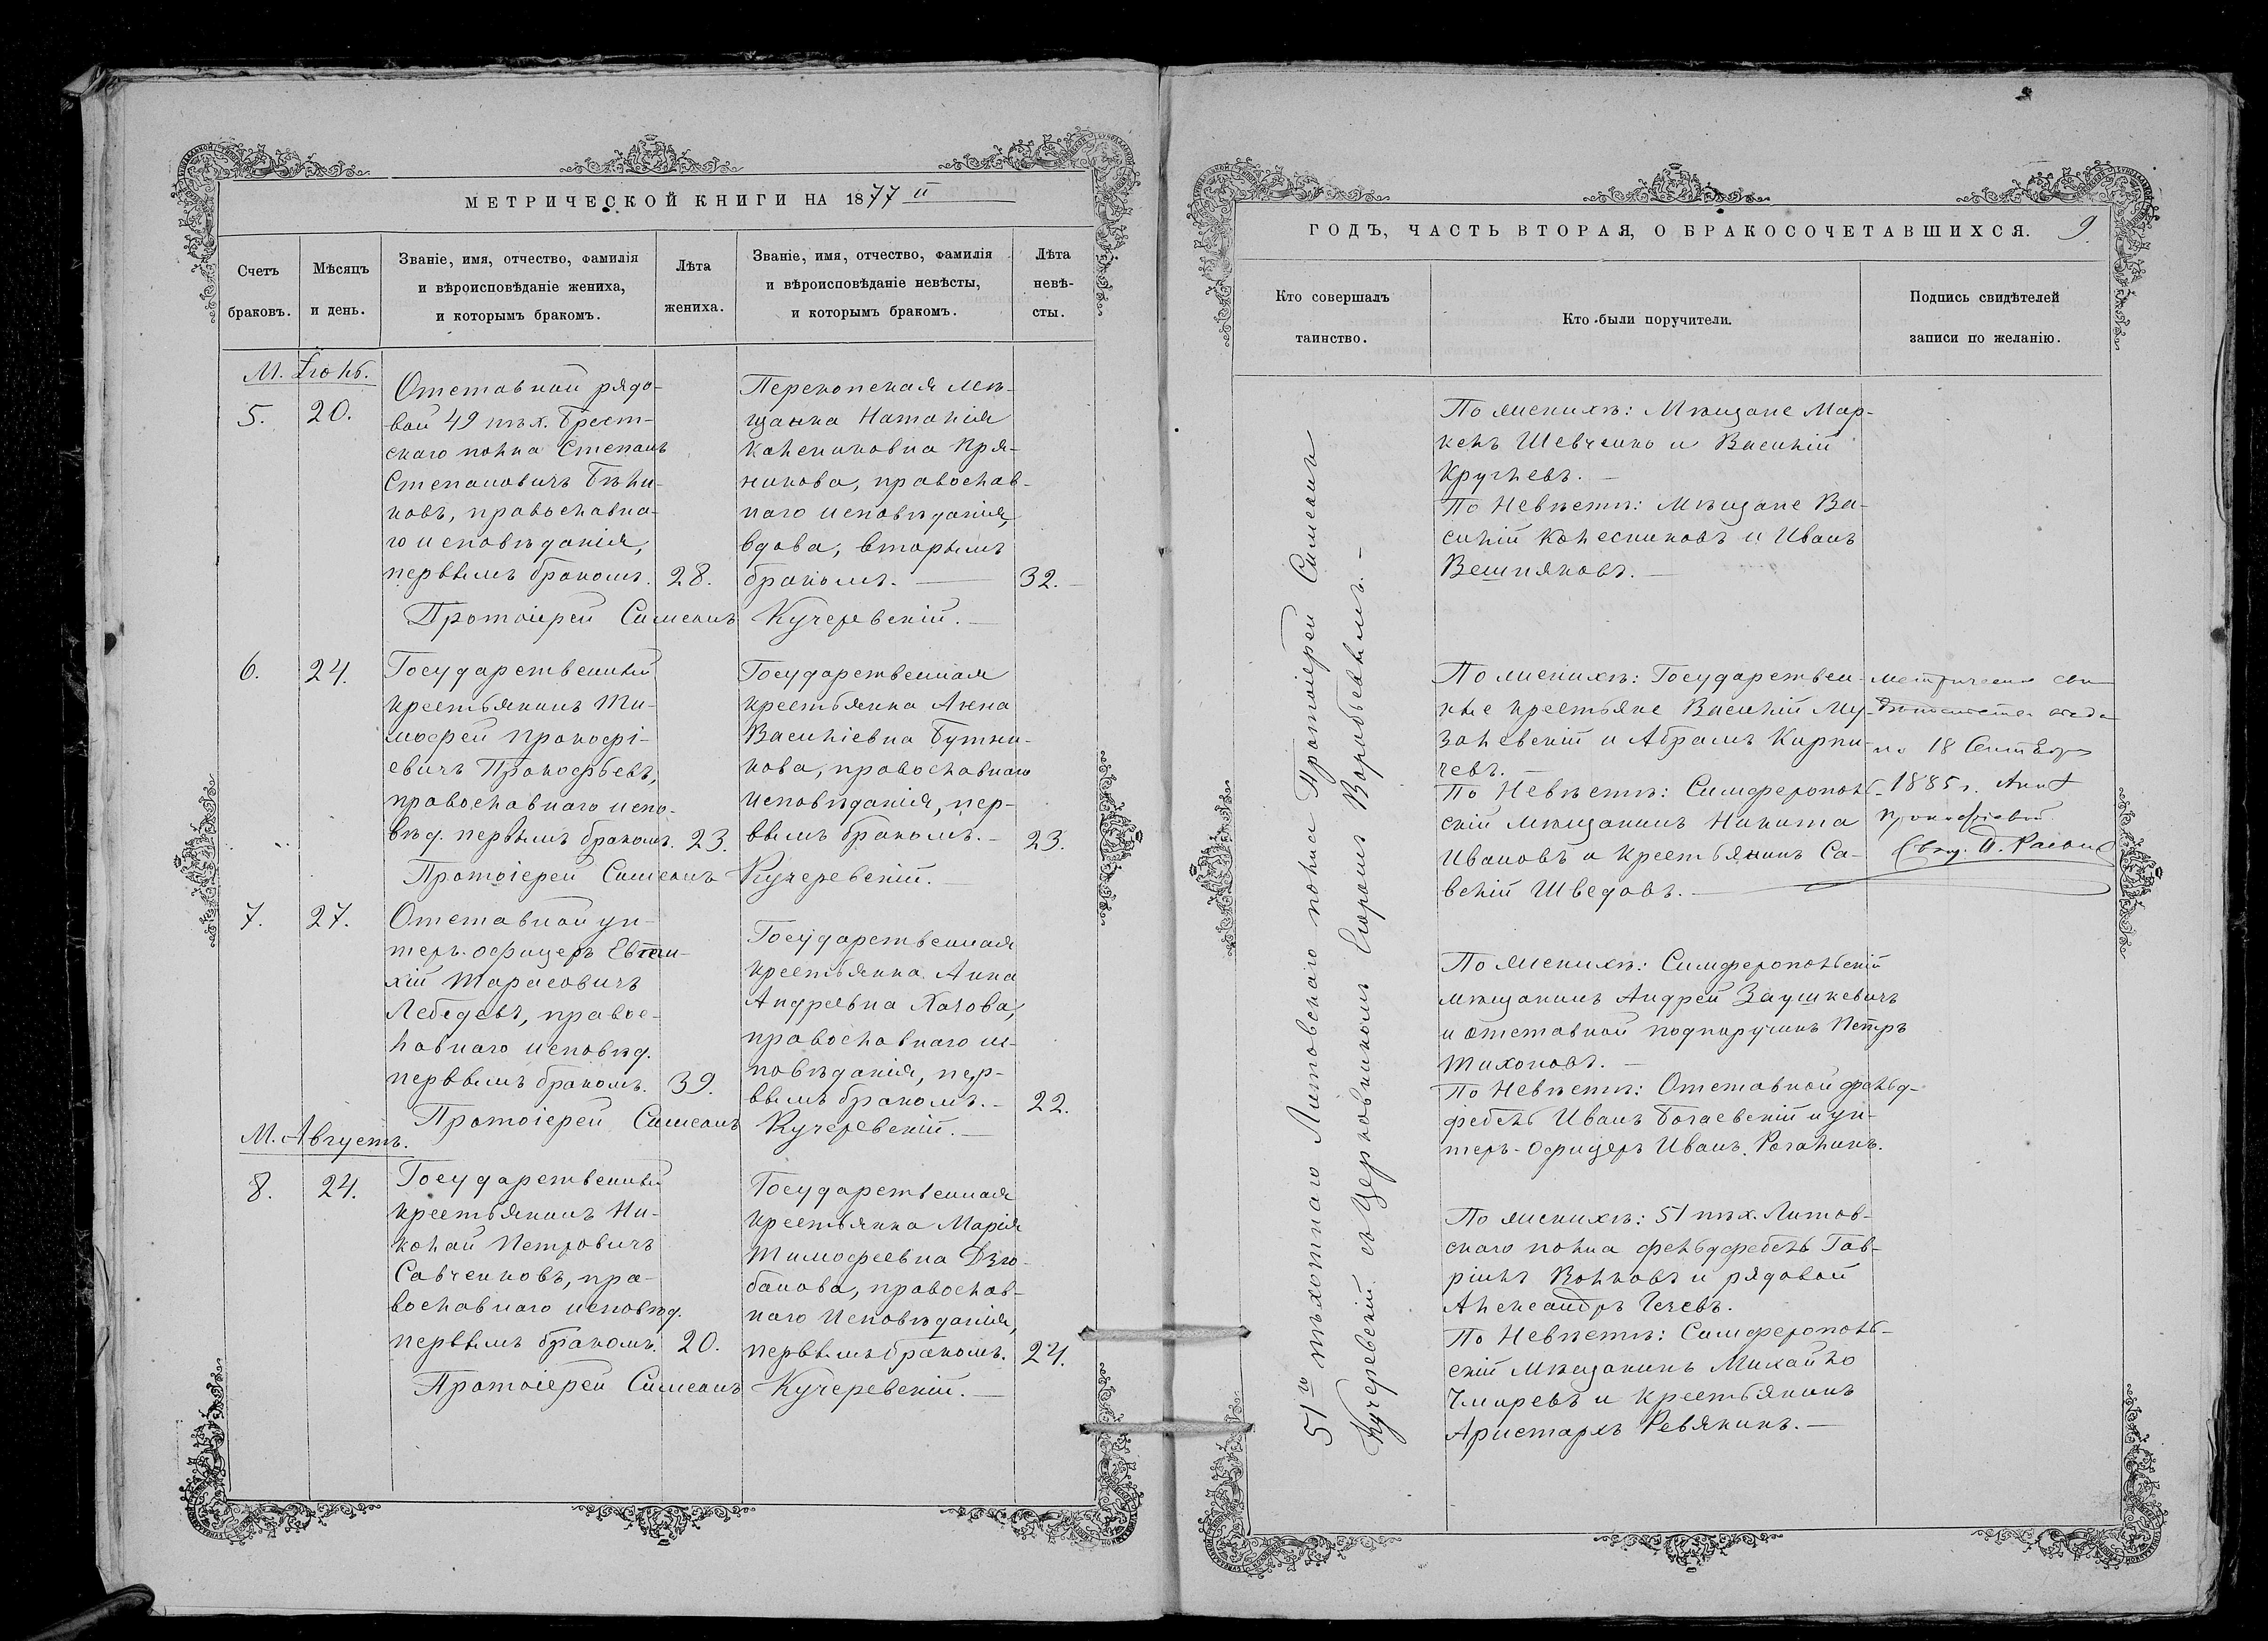 МЕТРИЧЕСКОЙ КНИГИ НА 1877 й
Счетъ браковъ.
Мѣсяцъ и день.
Званіе, имя, отчество, фамилія
и вѣроисповѣданіе жениха,
и которымъ бракомъ.
Лѣта жениха.
Званіе, имя, отчество, фамилія
и вѣроисповѣданіе невѣсты,
и которымъ бракомъ.
Лѣта невѣ-
сты.
М. Іюль.
5. 20.
Отставной рядо-
вой 49 пѣх. Брест-
скаго полка Степанъ
Степановичъ Бѣли-
ковъ, православна-
го исповѣданія,
первымъ бракомъ. 28.
Перекопская мѣ-
щанка Наталія
Колениковна Пря-
никова, православ-
наго исповѣданія,
вдова, вторымъ
бракомъ. — 32.
Протоіерей Симеонъ Кучеревскій. —
6. 24.
Государственный
крестьянинъ Ти-
мофей Прокофі-
евичъ Прокофьевъ,
православнаго испо-
вѣд. первымъ бракомъ. 23.
Государственная
крестьянка Анна
Василіевна Бутни-
кова, православнаго
исповѣданія, пер-
вымъ бракомъ. — 23.
Протоіерей Симеонъ Кучеревскій. —
7. 27.
Отставной ун-
теръ-офицеръ Евти-
хій Тарасовичъ
Лебедевъ, правос-
лавнаго исповѣд.
первымъ бракомъ. 39.
Государственная
крестьянка Анна
Андреевна Хачова,
православнаго ис-
повѣданія, пер-
вымъ бракомъ. — 22.
Протоіерей Симеонъ Кучеревскій. —
М. Августъ.
8. 24.
Государственный
крестьянинъ Ни-
колай Петровичъ
Савченковъ, пра-
вославнаго исповѣд.
первымъ бракомъ. 20.
Государственная
крестьянка Марія
Тимофеевна Дзю-
банова, православ-
наго исповѣданія,
первымъ бракомъ. 24.
Протоіерей Симеонъ Кучеревскій. —
ГОДЪ, ЧАСТЬ ВТОРАЯ, О БРАКОСОЧЕТАВШИХСЯ. 9.
Кто совершалъ
таинство.
Кто были поручители.
Подпись свидѣтелей
записи по желанію.
51 го пѣхотнаго Литовскаго полка Протоіерей Симеонъ
Кучеревскій съ Церковникомъ Егоромъ Воробьевымъ. —
По женихѣ: Мѣщане Мар-
келъ Шевченко и Василій
Круглевъ. —
По Невѣстѣ: Мѣщане Ва-
силій Колесниковъ и Иванъ
Вешняковъ. —
По женихѣ: Государствен-
ные крестьяне Василій Му-
залевскій и Абрамъ Кирпи-
чевъ. —
По Невѣстѣ: Симферополь-
скій мѣщанинъ Никита
Ивановъ и крестьянинъ Са-
велій Шведовъ. —
Метрическое сви
дѣтельство выда
но 18 Сентября
1885 г. Анн
Прокофіевой
По женихѣ: Симферопольскій
мѣщанинъ Андрей Заушкевичъ
и отставной подпоручикъ Петръ
Тихоновъ. —
По Невѣстѣ: Отставной фельд-
фебель Иванъ Богаевскій и ун-
теръ-Офицеръ Иванъ Рогалинъ.
По женихѣ: 51 пѣх. Литов-
скаго полка фельдфебель Гав-
ріилъ Волковъ и рядовой
Александръ Гечевъ.
По Невѣстѣ: Симферополь-
скій Мѣщанинъ Михайло
Чмыревъ и Крестьянинъ
Аристархъ Ревякинъ. —